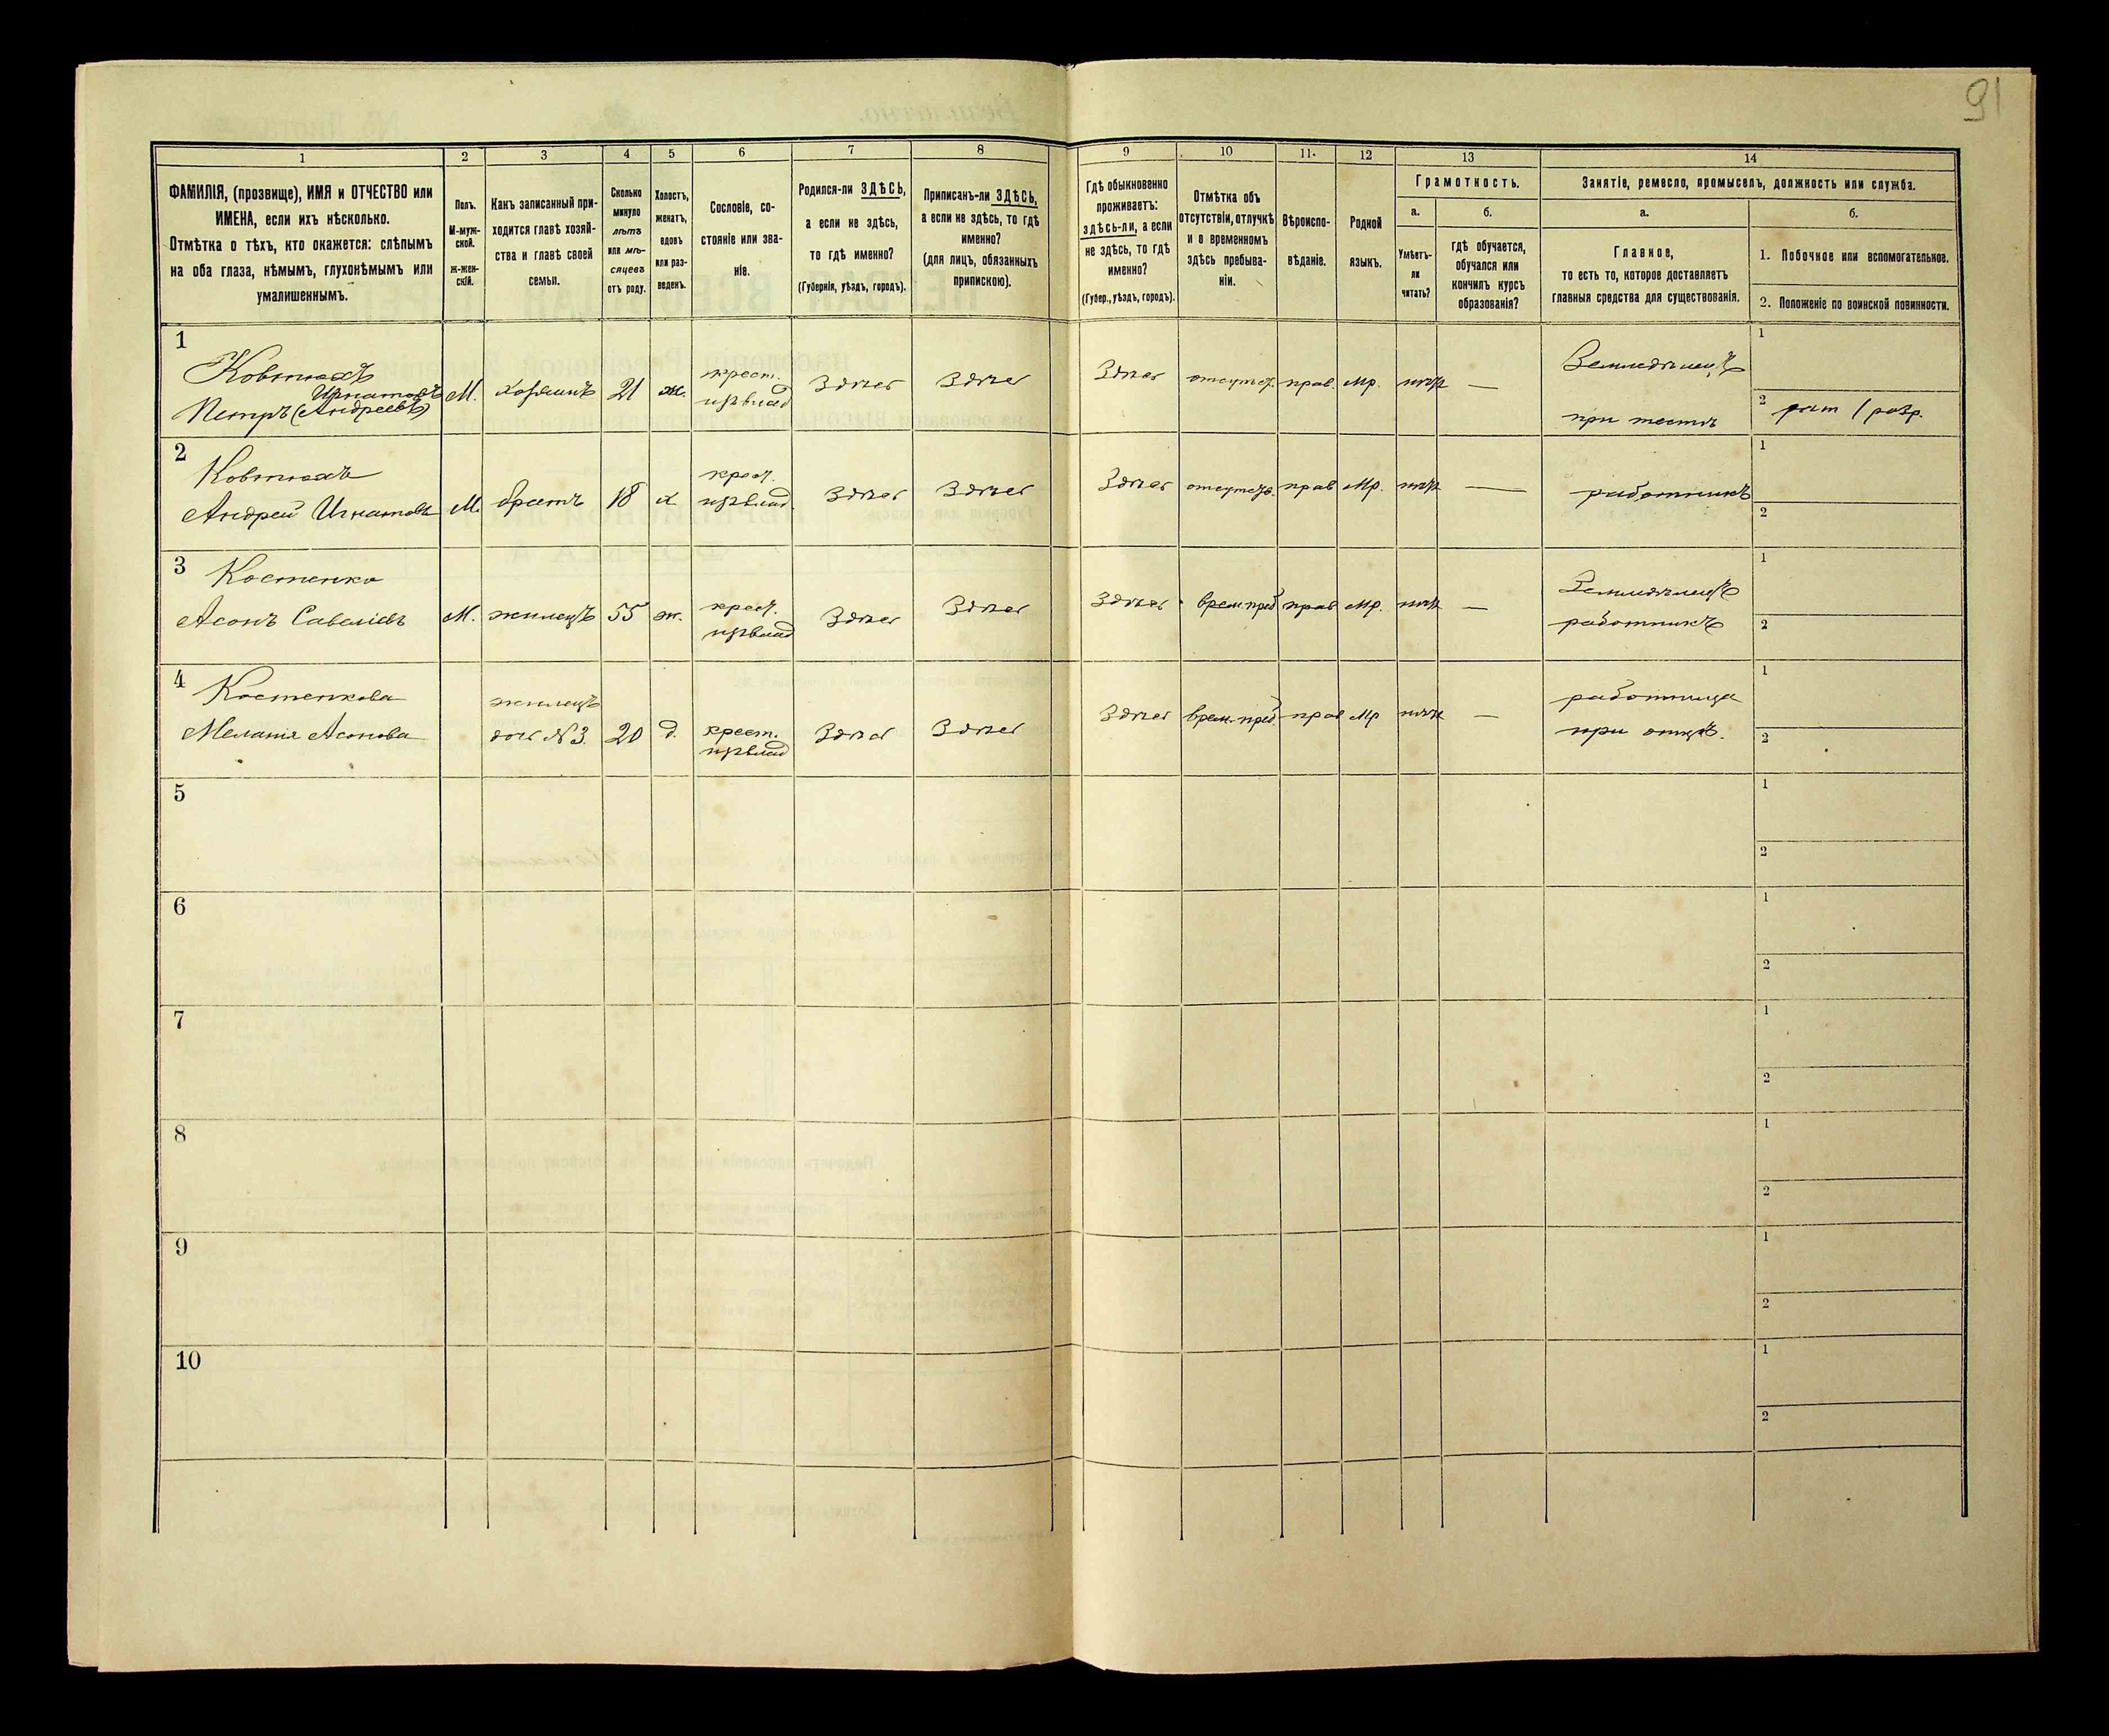 91
1 2 3 4 5 6 7 8 9 10 11. 12 13 14
ФАМИЛІЯ, (прозвище), ИМЯ и ОТЧЕСТВО или
ИМЕНА, если ихъ нѣсколько.
Отмѣтка о тѣхъ, кто окажется: слѣпымъ
на оба глаза, нѣмымъ, глухонѣмымъ или
умалишеннымъ.
Полъ.
М-муж-
ской.
Ж-жен-
скій.
Какъ записанный при-
ходится главѣ хозяй-
ства и главѣ своей
семьи.
Сколько
минуло
лѣтъ
или мѣ-
сяцевъ
отъ роду.
Холостъ,
женатъ,
вдовъ
или раз-
веденъ.
Сословіе, со-
стояніе или зва-
ніе.
Родился-ли ЗДѢСЬ,
а если не здѣсь,
то гдѣ именно?
(Губернія, уѣздъ, городъ).
Приписанъ-ли ЗДѢСЬ,
а если не здѣсь, то гдѣ
именно?
(для лицъ, обязанныхъ
припискою).
Гдѣ обыкновенно
проживаетъ:
здѣсь-ли, а если
не здѣсь, то гдѣ
именно?
(Губер., уѣздъ, городъ).
Отмѣтка объ
отсутствіи, отлучкѣ
и о временномъ
здѣсь пребыва-
ніи.
Вѣроиспо-
вѣданіе.
Родной
языкъ.
Грамотность.
а. б.
Умѣетъ-
ли
читать?
гдѣ обучается,
обучался или
кончилъ курсъ
образованія?
Занятіе, ремесло, промыселъ, должность или служба.
а. б.
Главное,
то есть то, которое доставляетъ
главныя средства для существованія.
1. Побочное или вспомогательное.
2. Положеніе по воинской повинности.
1
Ковтюхъ
Игнатовъ
Петръ (Андреевъ)
М. хозяинъ 21 ж.
крест.
изъ влад
Здѣсь Здѣсь Здѣсь отсутст. прав. мр. нѣтъ —
Земледѣлецъ
при тестѣ
1
2 рат 1 разр.
2
Ковтюхъ
Андрей Игнатовъ
М. братъ 18 х
крест.
изъ влад.
Здѣсь Здѣсь Здѣсь отсутств. прав мр. нѣтъ —
работникъ
1
2
3
Костенко
Асонъ Савеліевъ
М. жилецъ 55 ж.
крест.
изъ влад
Здѣсь Здѣсь Здѣсь врем. преб прав мр. нѣтъ —
Земледѣлецъ
работникъ
1
2
4
Костенкова
Меланія Асонова
жилецъ
дочь №3. 20 д.
крест.
изъ влад
Здѣсь Здѣсь Здѣсь врем. преб прав мр нѣтъ —
работница
при отцѣ.
1
2
5
1
2
6
1
2
7
1
2
8
1
2
9
1
2
10
1
2